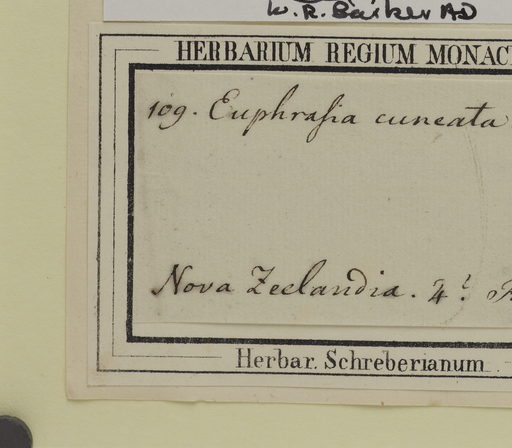 W. R. Barker AD
HERBARIUM REGIUM MONAC
109. Euphraſia cuneata
Nova Zeelandia. 4!
Herbar. Schreberianum.